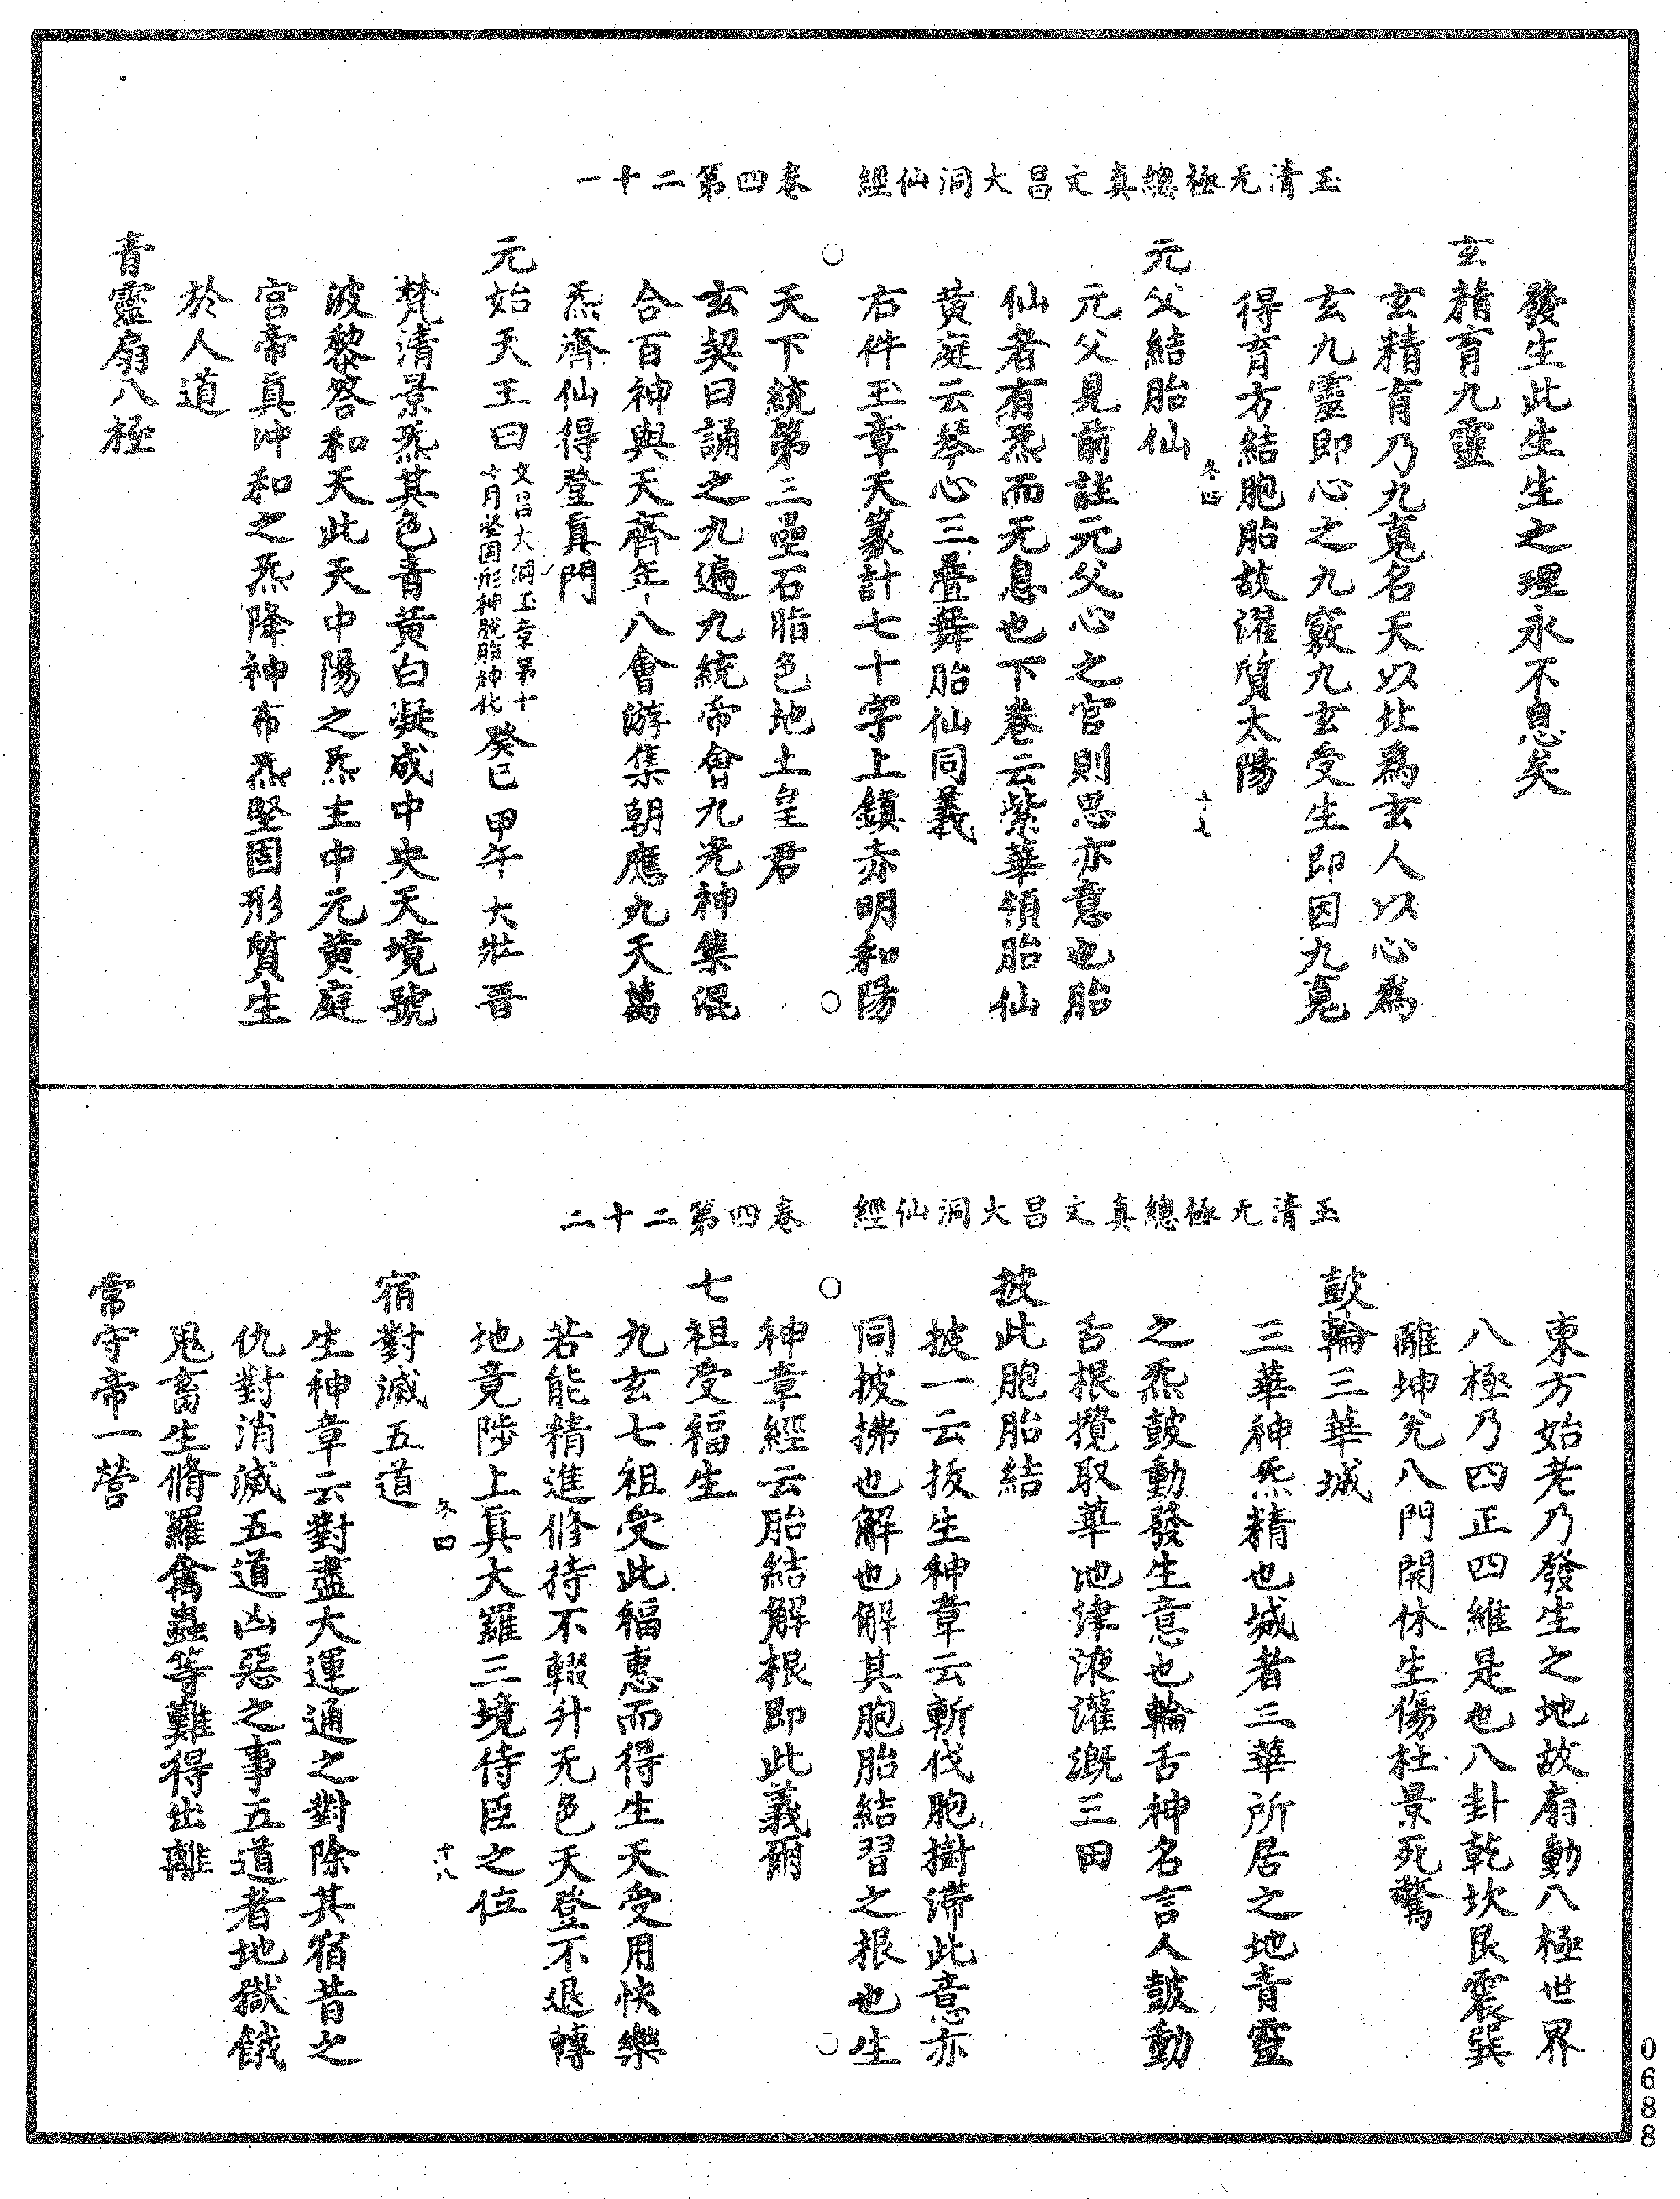 玉清无極總真文昌大洞仙經　卷四第二十一
發生此生生之理永不息矣
玄精育九靈
玄精育乃九䰟名天以北為玄人以心為
玄九靈即心之九竅九玄受生即因九䰟
得育方結胞胎故濯質太陽
卷四
十七
元父結胎仙
元父見前註元父心之宮則思亦意也胎
仙者有炁而无息也下卷云紫華領胎仙
黃庭云琴心三疊舞胎仙同義
右件玉章天篆計七十字上鎮赤明和陽
天下統第三壘石脂色地土皇君
玄契曰誦之九遍九統帝會九光神集混
合百神與天齊年八會游集朝應九天萬
炁齊仙得登真門
元始天王曰文昌大洞玉章第十十月坚固形神脱胎神化癸巳　甲午　大壯　晉
梵清景炁其色青黃白凝成中央天境號
波黎答和天此天中陽之炁主中元黃庭
宮帝真冲和之炁降神布炁坚固形質生
於人道
青靈扇八極
玉清无極總真文昌大洞仙經　卷四第二十二
東方始老乃發生之地故扇動八極世界
八極乃四正四維是也八卦乾坎艮震巽
離坤兊八門開休生傷杜景死驚
鼓輪三華城
三華神炁精也城者三華所居之地青靈
之炁鼓動發生意也輪舌神名言人鼓動
舌根攪取華池津液灌溉三田
披此胞胎結
披一云拔生神章云斬伐胞樹滯此意亦
同披拂也解也解其胞胎結習之根也生
神章經云胎結解根即此義爾
七祖受福生
九玄七祖受此福惠而得生天受用快樂
若能精進修持不輟升无色天登不退轉
地竟陟上真大羅三境侍臣之位
卷四
十八
宿對滅五道
生神章云對盡大運通之對除其宿昔之
仇對消滅五道凶惡之事五道者地獄餓
鬼畜生脩羅禽蟲等難得出離
常守帝一營
0688